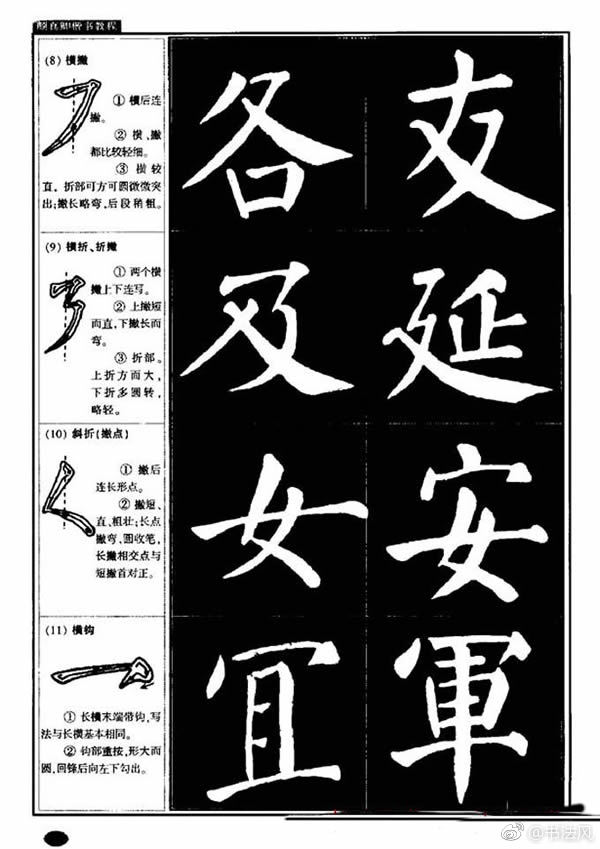 颜真卿楷书教程
(8) 横撇
① 横后连
撇。
② 横、撇
都比较轻细。
③ 横较
直。折部可方可圆微微突
出;撇长略弯,后段稍粗。
各 支
(9) 横折、折撇
① 两个横
撇上下连写。
② 上撇短
而直,下撇长而
弯。
③ 折部。
上折方而大,
下折多圆转,
略轻。
及 延
(10) 斜折(撇点)
① 撇后
连长形点。
② 撇短、
直、粗壮;长点
撇弯、圆收笔,
长撇相交点与
短撇首对正。
女 安
(11) 横钩
① 长横末端带钩,写
法与长横基本相同。
② 钩部重按,形大而
圆,回锋后向左下勾出。
冝 軍
@书法风